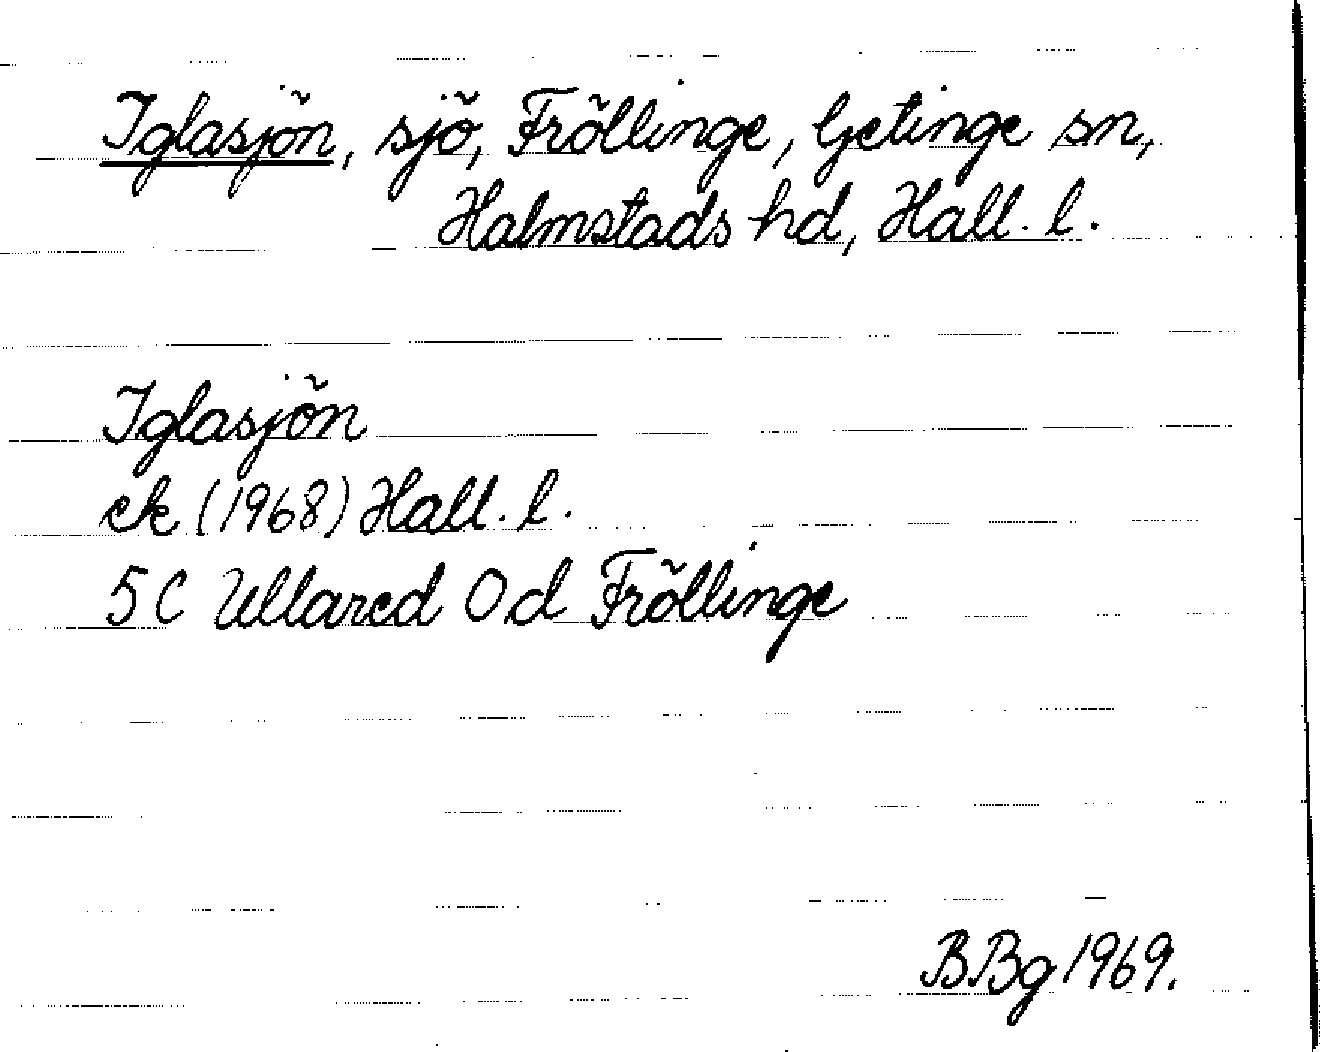 Iglasjön, sjö, Fröllinge, Getinge sn,
Halmstads hd, Hall. l.
Iglasjön
ek (1968) Hall. l.
5C Ullared 0d Fröllinge
BBg 1969.